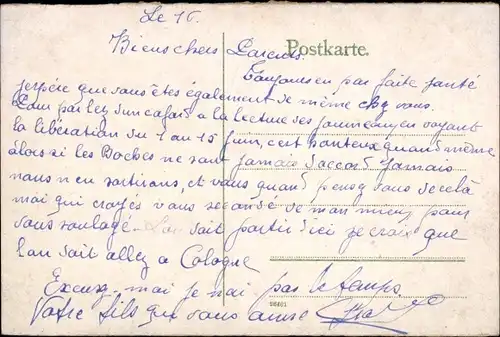 Le 16.
Biens chers Parents. Postkarte.
Toujours en par faite santé
jespére que vous êtes également de même chez vous.
Vous parlez d'un cafard a la lecture des journeaux en voyant
la libération du 1 au 15 Juin, cest honteux quand même
alors si les Boches ne sont jamais d'accord jamais
nous n'en sortirons, et vous quand pensez vous de celà
moi qui croyés vous secondé de mon mieux pour
vous soulagé. L'on soit partir d'ici je crois que
l'on doit allez a Cologne
Excusez-moi je n'ai pas le temps
Votre fils qui vous aime